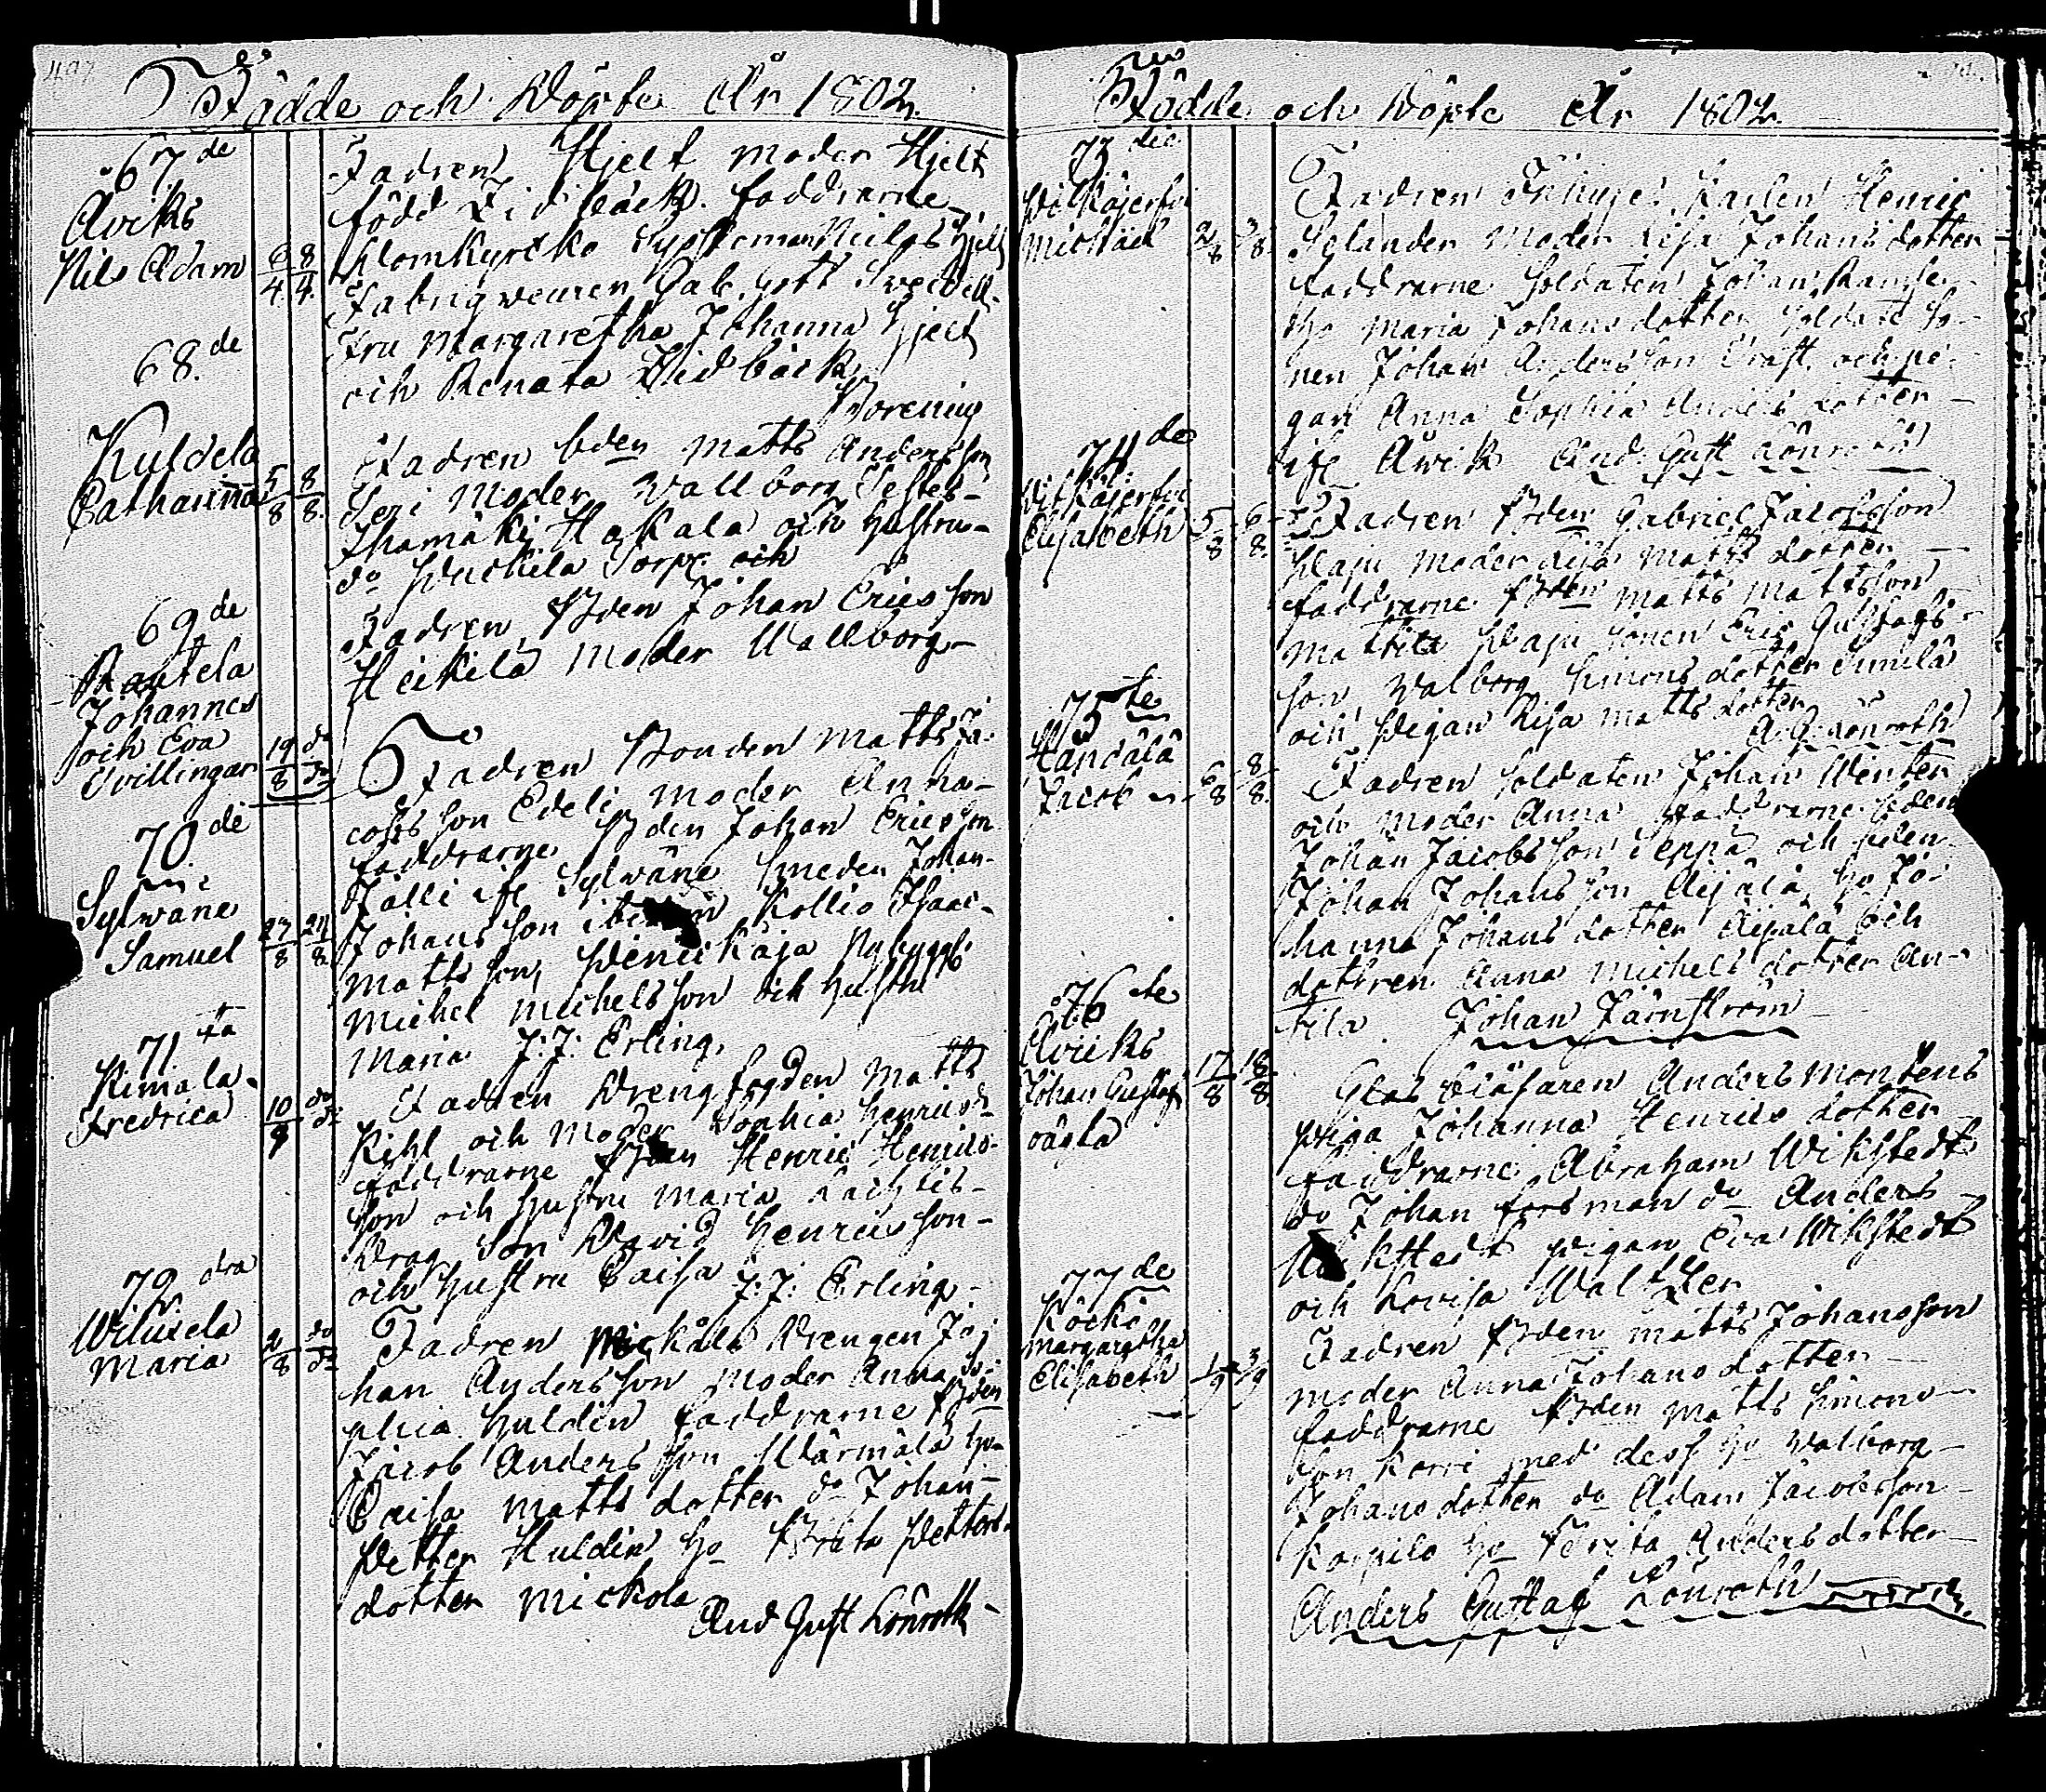 Födde och Döpte År 1802
67de
Åviks
Nils Adam
6/4 8/4
Fadren Hjelt moder Hjelt
född Lidbäck. faddrarne
Klomkyrcko Hjelt
Gab. Gott
Fru Margaretha Johanna Hjelt
och Renata Lidbäck
68.de
Kuldela
Catharina
5/8 8/8
Fadren bden Matts Andersson
Seri Moder Wallborg
Hakala och hustru
do Torp. och
69de
Rautela
Johannes
och Eva
Tvillingar
19/8 do do
Fadren Bden Johan Ericsson
Heikilä Moder Wallborg
70.de
Sylwäne
Samuel
27/8 29/8
Fadren Bonden Matts Ja-
cobsson Edeli moder Anna
faddrarne Bden Johan Ericsson
Talli ifr Sylwäne smeden Johan
Johansson Kollio Isaac
Mattsson, Nybygg.
Michel Michelsson och hustru
Maria J: J: Erling.
71ta
Rimala
Fredrica
10/8 do do
Fadren Drengfogden Matts
Rihl och Moder Sophia Henricsd
faddrarne Bden Henric Henrics-
son och hustru Maria
Drag Son David Henricsson
och hustru Caisa J: J: Erling
72.dra
Wiluxela
Maria
2/8 do do
Fadren Mickola Drengen Jo-
han Andersson Moder Anna So-
phia Huldin faddrarne Bden
Jacob Andersson Wärmälä ho
Caisa Matts dotter do Johan
Petter Huldin ho Brita Petters
dotter Mickola
And Gust Lönroth
Födde och Döpte År 1802
73die
Michael
2/8 3/8
Fadren Karlen Henric
Selander Moder Lisa Johansdotter
faddrarne Soldaten Johan
ho Maria Johansdotter Soldats So-
nen Johan Andersson Kraft, och pi-
gan Anna Sophia Anders dotter
ifr Åvik And: Gust Lönroth
74de
Elisabeth
5/8 6/8
Fadren Bden Gabriel Jacobsson
Paju Moder Lisa Matts dotter
faddrarne Bden Matts Mattsson
Mattila Paju Sonen Eric Gustafs-
son, Walborg Simons dotter Simila
och Pigan Lisa Matts dotter
A. G. Lönroth
75te
Handälä
Jacob
6/8 8/8
Fadren Soldaten Johan Winter
och Moder Anna faddrarne bden
Johan Jacobsson Seppä och bden
Johan Johansson Äijälä, ho Jo-
hanna Johans dotter Äijälä och
dottren Anna Michels dotter An-
tila. Johan Järnström
76te
Åviks
Johan Gustaf
oägta
17/8 18/8
Glas blåsaren Anders Montens
piga Johanna Henrics dotter
faddrarne, Abraham Wikstedt
do Johan Forsman do Anders
Wikstedt pigan Eva Wikstedt
och Lovisa Waltzer
77de
Köckö
Margaretha
Elisabeth
1/9 3/9
Fadren Bden Matts Johansson
moder Anna Johans dotter
faddrarne Bden Matts Simons-
son Korri med dess ho Walborg
Johans dotter do Adam Jacobsson
Korpila ho Brita Anders dotter
Anders Gustaf Lönroth